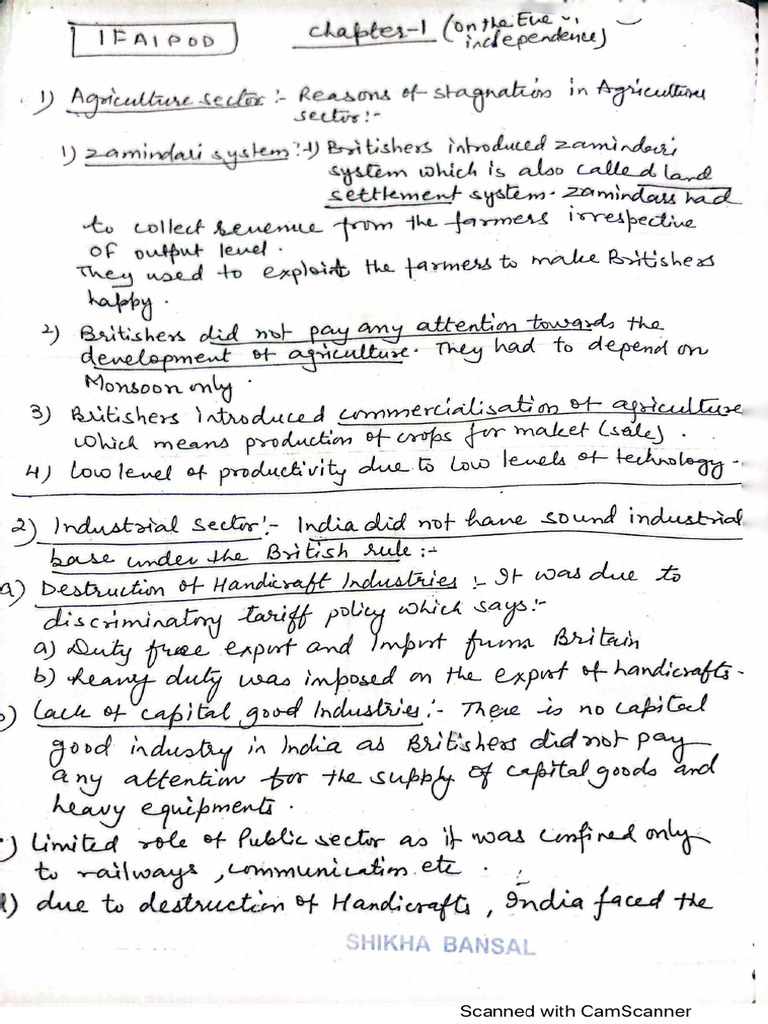 IFAIPOD
Chapter-1 (On the Eve
independence)
1) Agriculture sector :- Reasons of stagnation in Agriculture
sector:-
1) Zamindari system :-1) Britishers introduced zamindari
system which is also called land
settlement system. Zamindars had
to collect revenue from the farmers irrespective
of output level.
They used to exploit the farmers to make Britishers
happy.
2) Britishers did not pay any attention towards the
development of agriculture. They had to depend on
Monsoon only.
3) Britishers introduced commercialisation of agriculture
which means production of crops for market (sale).
4) Low level of productivity due to low levels of technology.
2) Industrial sector :- India did not have sound industrial
base under the British rule :-
a) Destruction of Handicraft Industries :- It was due to
discriminatory tariff policy which says:-
a) Duty free export and Import from Britain
b) heavy duty was imposed on the export of handicrafts.
b) Lack of capital good Industries :- There is no capital
good industry in India as Britishers did not pay
any attention for the supply of capital goods and
heavy equipments.
) Limited role of Public sector as it was confined only
to railways, communication etc.
d) due to destruction of Handicrafts, India faced the
SHIKHA BANSAL
Scanned with CamScanner